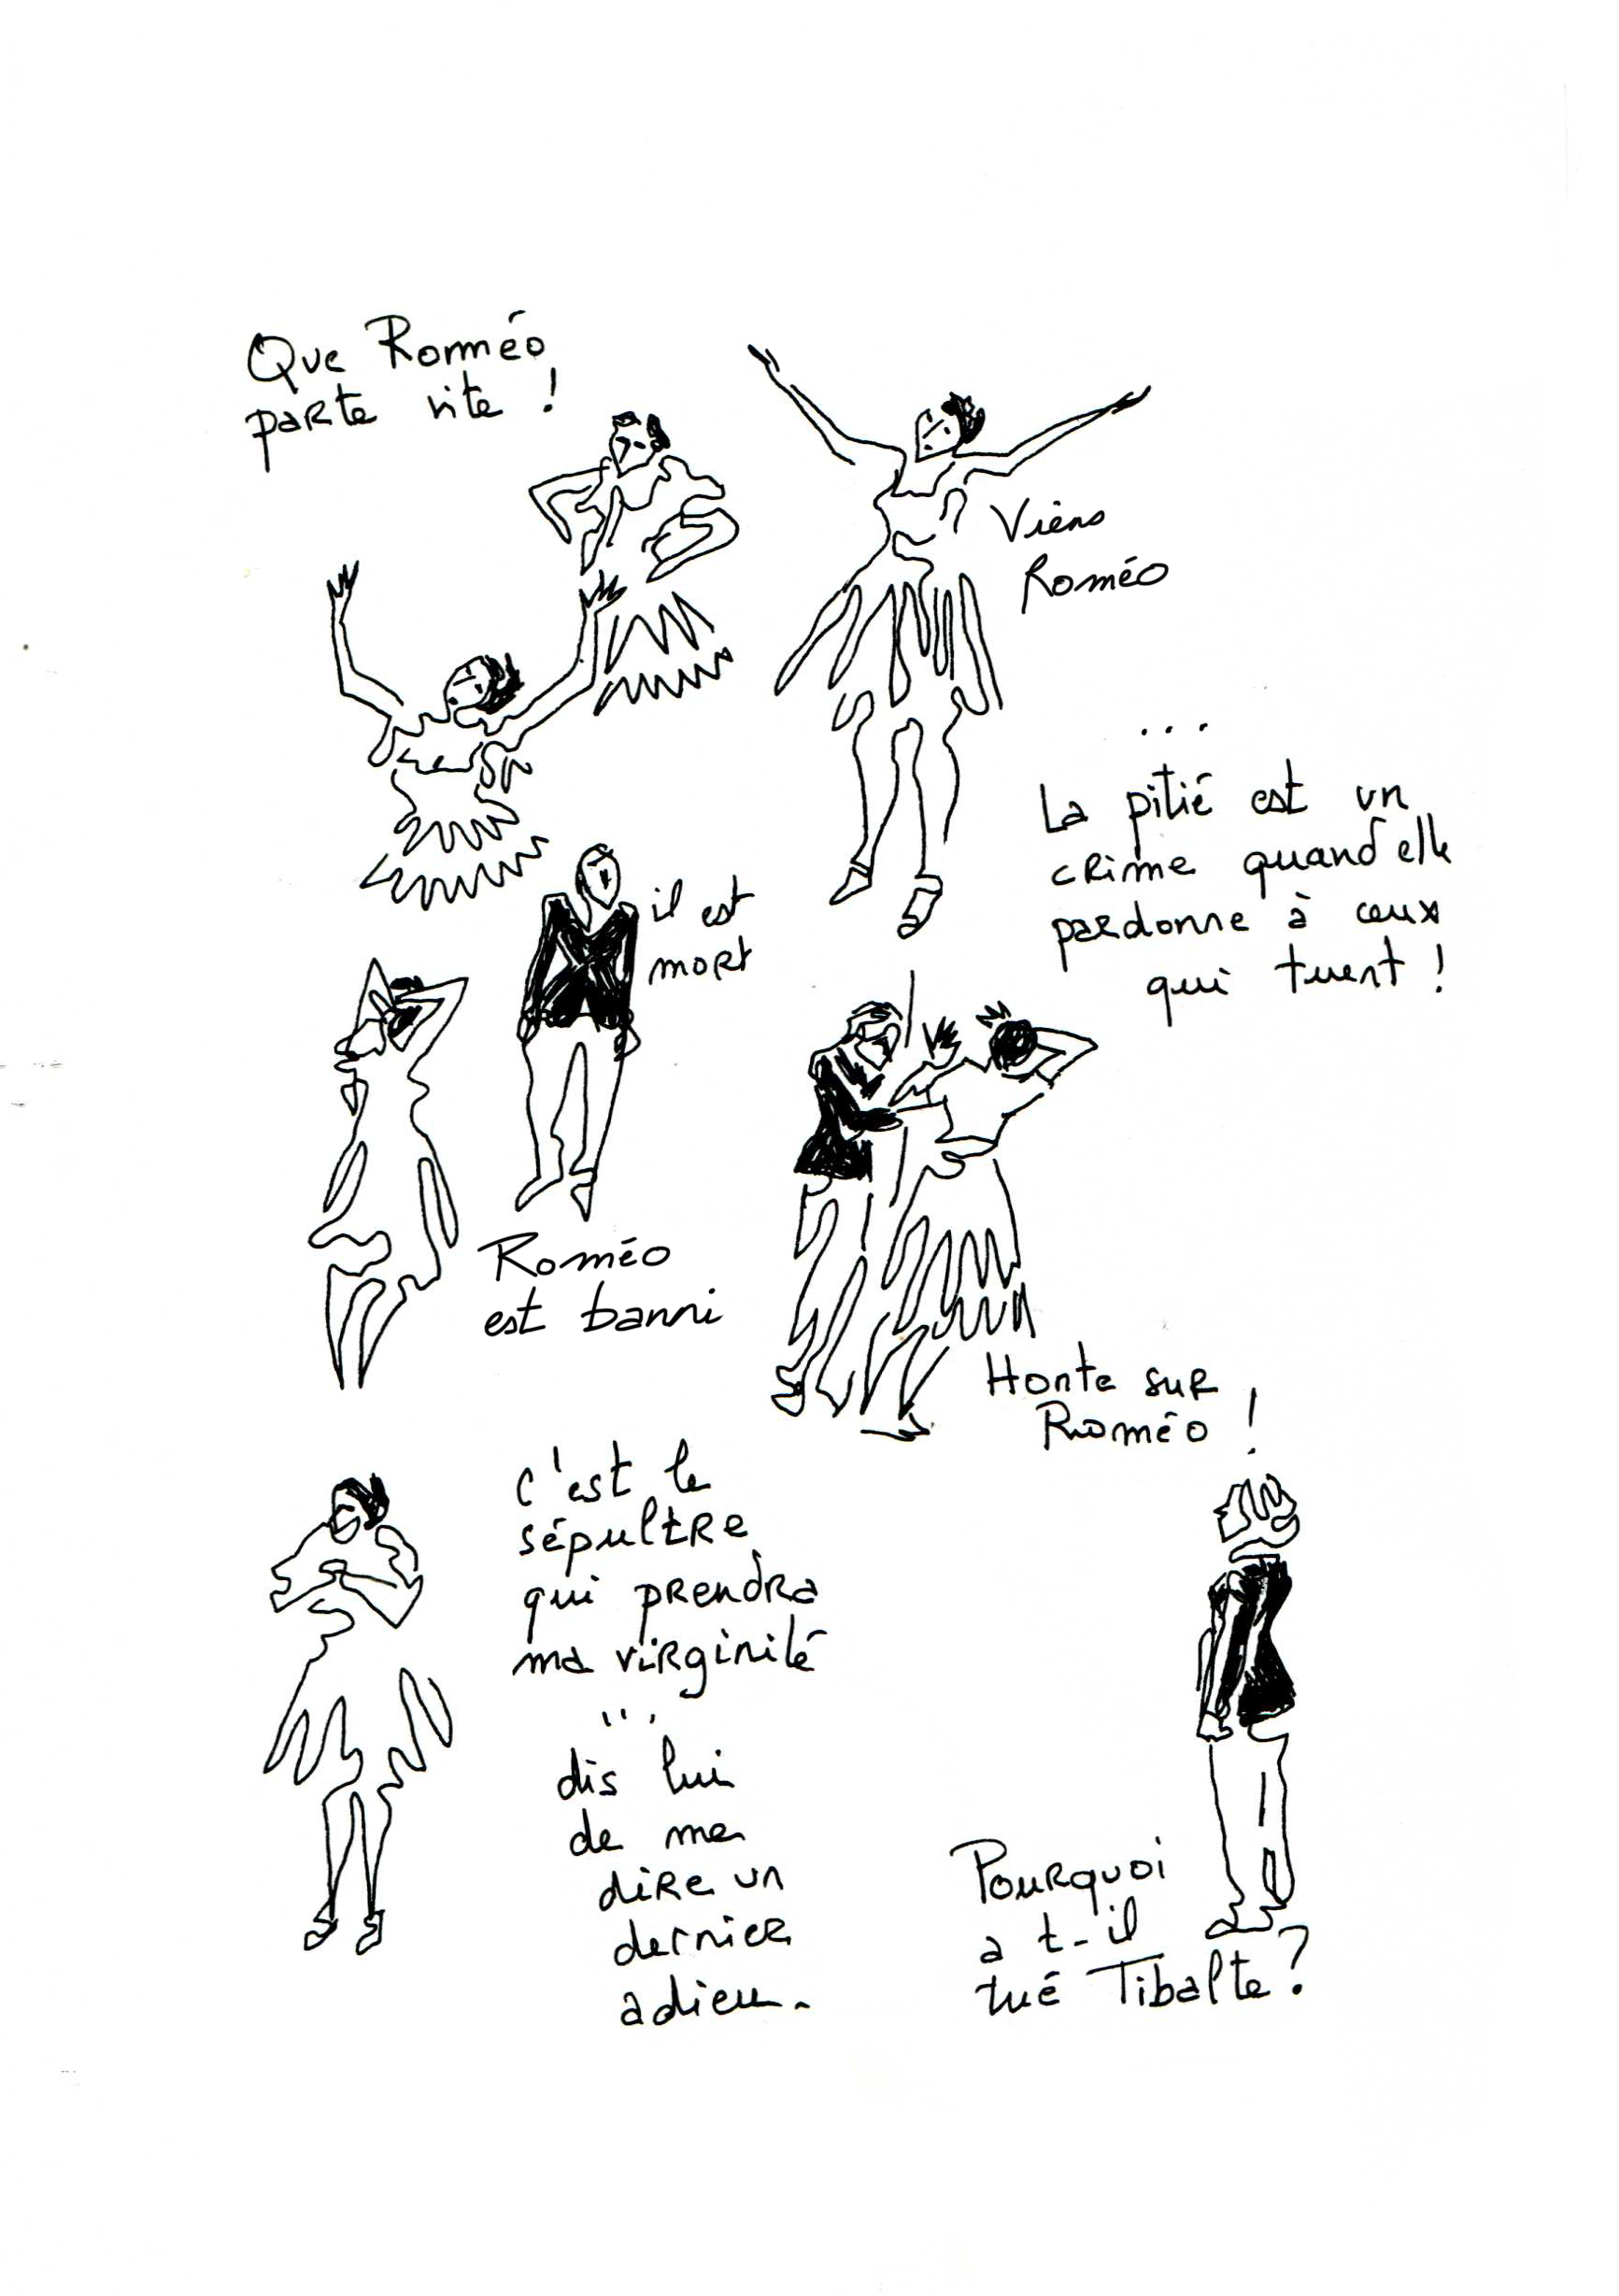 Que Roméo
parte vite !
Viens
Roméo
...
La pitié est un
crime quand elle
pardonne à ceux
qui tuent !
il est
mort
Roméo
est banni
Honte sur
Roméo !
c'est le
sépultre
qui prendra
ma virginité
...
dis lui
de me
dire un
dernier
adieu.
Pourquoi
a t-il
tué Tibalte ?